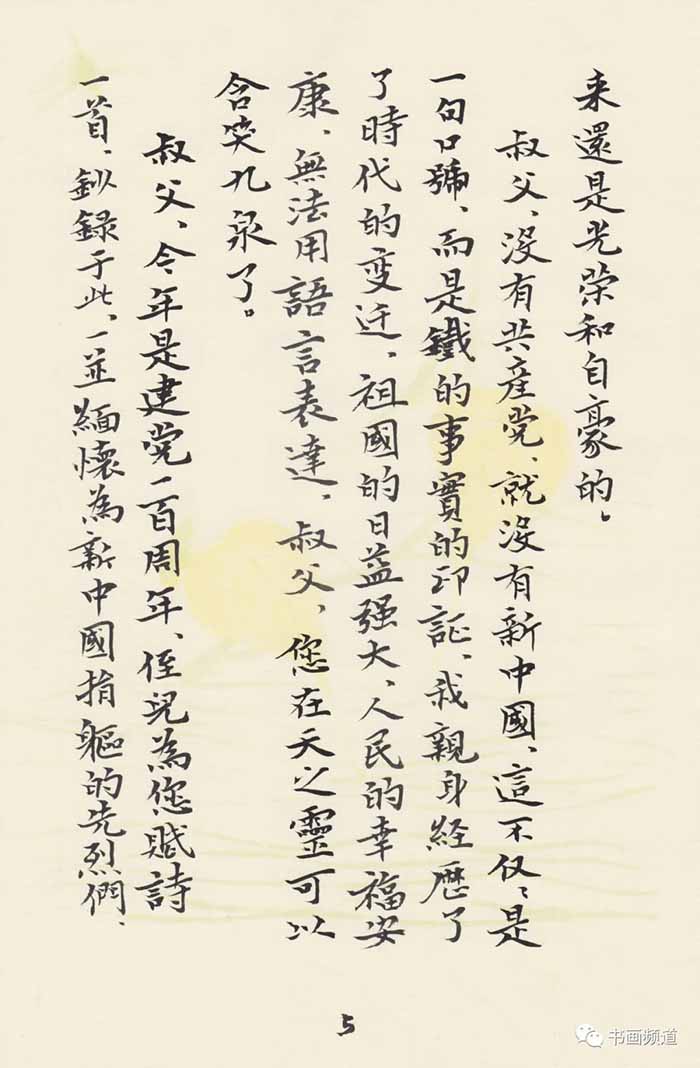 来還是光荣和自豪的。
叔父、没有共産党、就没有新中國、這不仅〻是
一句口號、而是鐵的事實的印証、我親身经歷了
了時代的变迁、祖國的日益强大、人民的幸福安
康、無法用語言表達、叔父、您在天之靈可以
含笑九泉了。
叔父、今年是建党一百周年、侄児為您賦詩
一首、鈔録于此、一並緬懷為新中國捐軀的先烈們、
5
书画频道